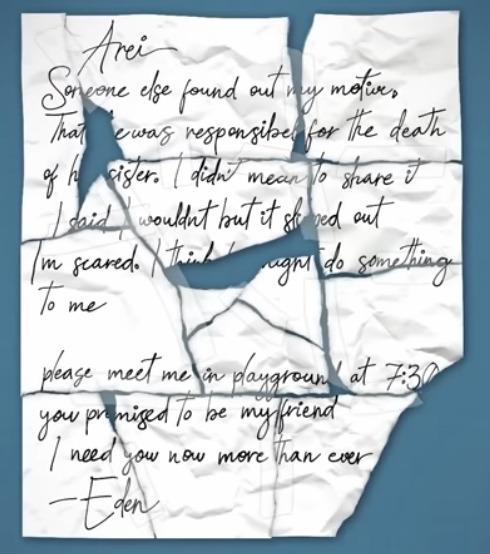 Arei
Someone else found out my motive.
That was responsibel for the death
of sister. I didn't mean to share it
I said I wouldnt but it out
I'm scared. I think do something
to me
please meet me in playground at 7:30
you promised to be my friend
I need you now more than ever
—Eden